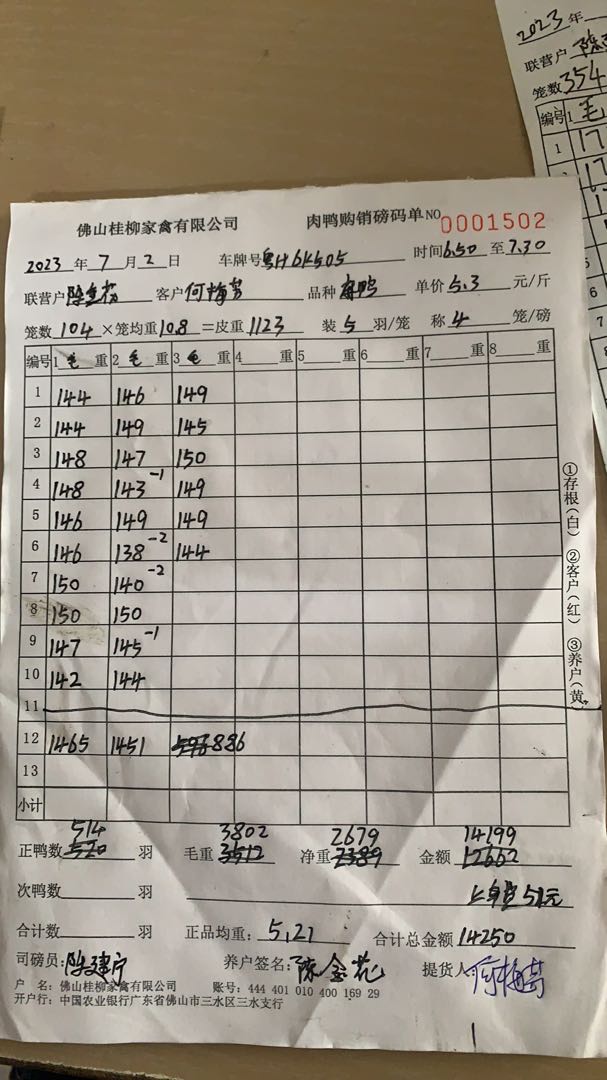 2023 年
联营户
笼数 354
编号 1 毛
1 17
2 17
佛山桂柳家禽有限公司 肉鸭购销磅码单 NO 0001502
2023 年 7 月 2 日 车牌号 粤H6K505 时间 6.50 至 7.30
联营户 客户 何梅芳 品种 单价 5.3 元/斤
笼数 104 ×笼均重 10.8 =皮重 1123 装 5 羽/笼 称 4 笼/磅
编号 1 毛 重 2 毛 重 3 毛 重 4 重 5 重 6 重 7 重 8 重
1 144 146 149
2 144 149 145
3 148 147 150
4 148 143 -1 149
5 146 149 149
6 146 138 -2 144
7 150 140 -2
8 150 150
9 147 145 -1
10 142 144
11
12 1465 1451 886
13
小计
514 3802 2679 14199
正鸭数 520 羽 毛重 3512 净重 2389 金额 12662
次鸭数 羽 上车费 51元
合计数 羽 正品均重: 5.21 合计总金额 14250
司磅员: 陈建宁 养户签名: 陈金花 提货人 何梅芳
户 名: 佛山桂柳家禽有限公司 账号: 444 401 010 400 169 29
开户行: 中国农业银行广东省佛山市三水区三水支行
①存根(白) ②客户(红) ③养户(黄)